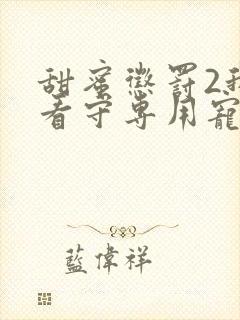 甜蜜懲罰2我
看守專用寵
藍偉祥